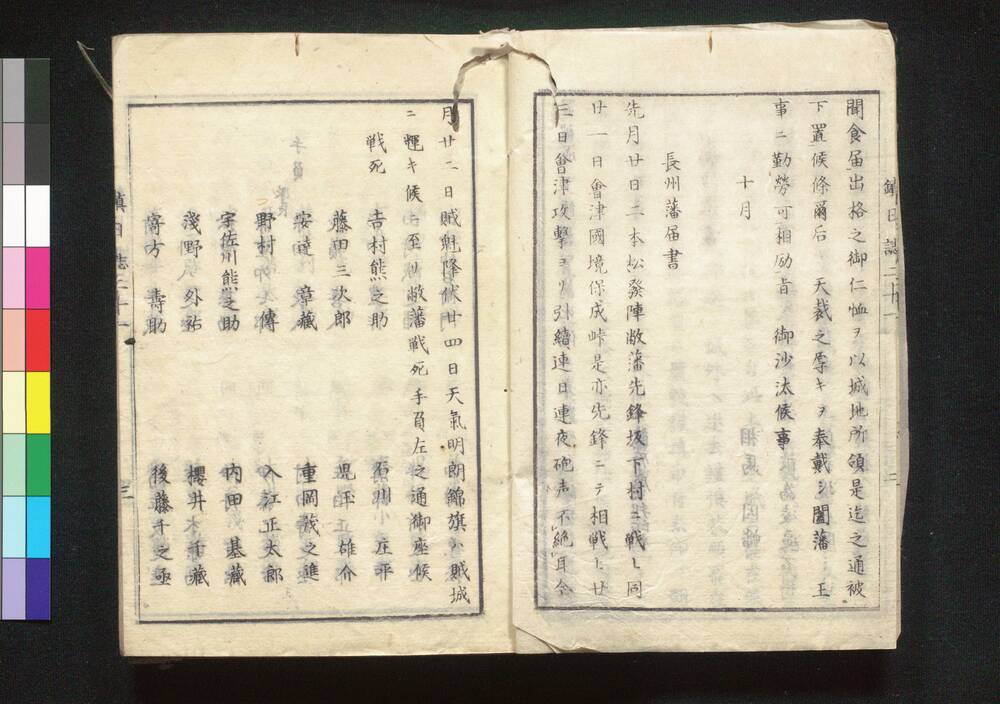 聞食届出格之御仁恤ヲ以城地所領是迄之通被
下置候條爾后　天裁之厚キヲ奉戴シ闔藩　王
事ニ勤勞可相励旨　御沙汰候事
十月
長州藩届書
先月廿日二本松發陣敝藩先鋒坂下村ニ戦ヒ同
廿一日會津國境保成峠是亦先鋒ニテ相戦ヒ廿
三日會津攻撃ヨリ引續連日連夜砲声不絶耳今
月廿二日賊魁降伏廿四日天氣明朗錦旗ハ賊城
ニ輝キ候ニ至リ敝藩戦死手負左之通御座候
戦死
吉村熊之助　石川庄平
藤田三次郎　児玉雄介
安達章藏　重岡茂之進
野村傳　入江正太郎
宇佐川熊之助　内田基藏
淺野外祐　櫻井千藏
寄方壽助　後藤千之亟
鎮日誌二十一　二
鎮日誌二十一　三